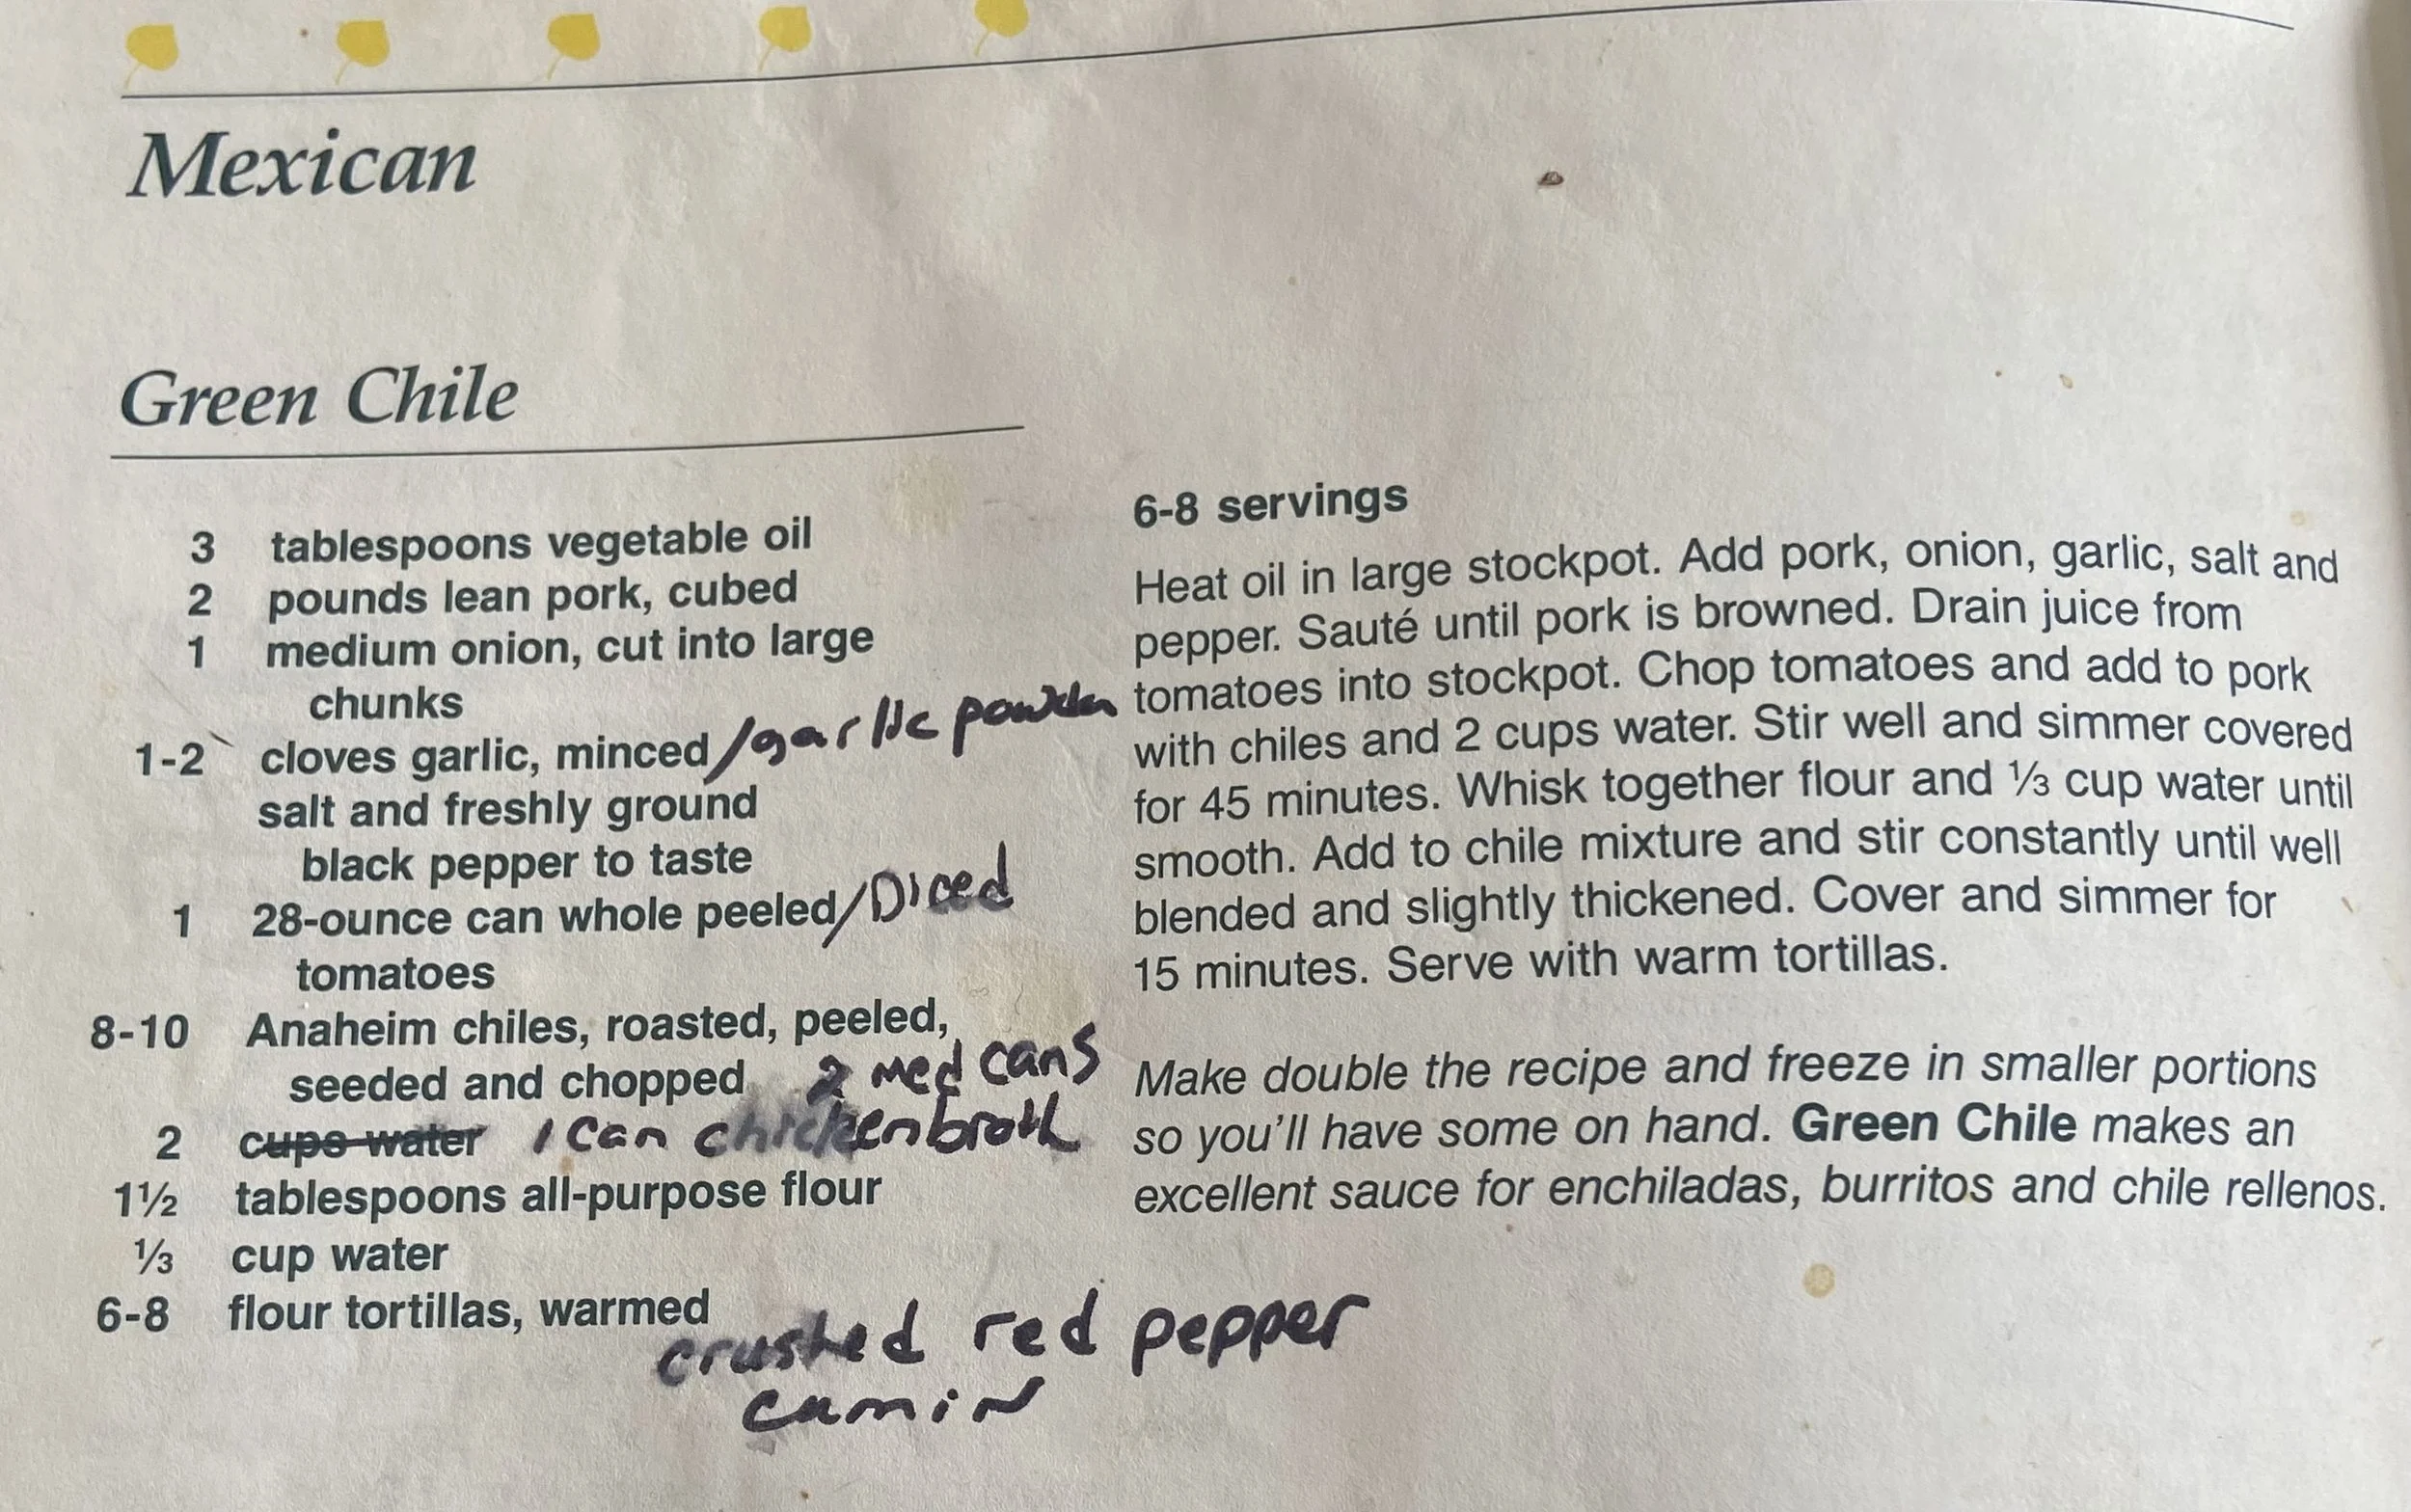 Mexican
Green Chile
3 tablespoons vegetable oil
2 pounds lean pork, cubed
1 medium onion, cut into large
chunks
1-2 cloves garlic, minced/garlic powder
salt and freshly ground
black pepper to taste
1 28-ounce can whole peeled/Diced
tomatoes
8-10 Anaheim chiles, roasted, peeled,
seeded and chopped 2 med cans
2 cups water 1 can chicken broth
1½ tablespoons all-purpose flour
⅓ cup water
6-8 flour tortillas, warmed
crushed red pepper
cumin
6-8 servings
Heat oil in large stockpot. Add pork, onion, garlic, salt and
pepper. Sauté until pork is browned. Drain juice from
tomatoes into stockpot. Chop tomatoes and add to pork
with chiles and 2 cups water. Stir well and simmer covered
for 45 minutes. Whisk together flour and ⅓ cup water until
smooth. Add to chile mixture and stir constantly until well
blended and slightly thickened. Cover and simmer for
15 minutes. Serve with warm tortillas.
Make double the recipe and freeze in smaller portions
so you'll have some on hand. Green Chile makes an
excellent sauce for enchiladas, burritos and chile rellenos.